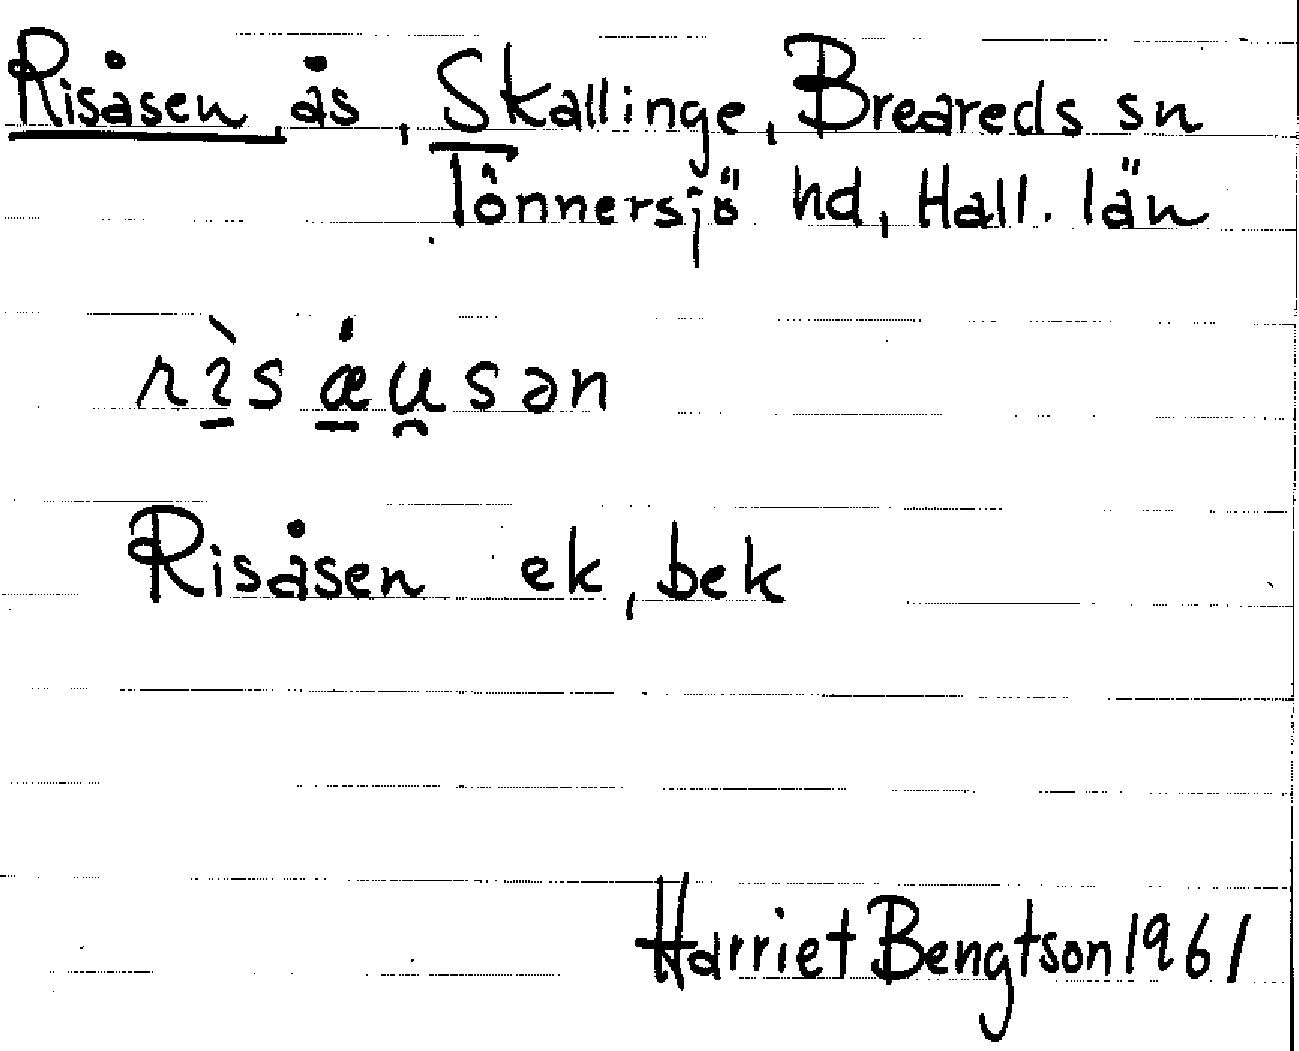 Risåsen, ås, Skallinge, Breareds sn
Tönnersjö hd, Hall. län
rɩ̱̀sǽ̱u̯sən
Risåsen ek, bek
Harriet Bengtson 1961